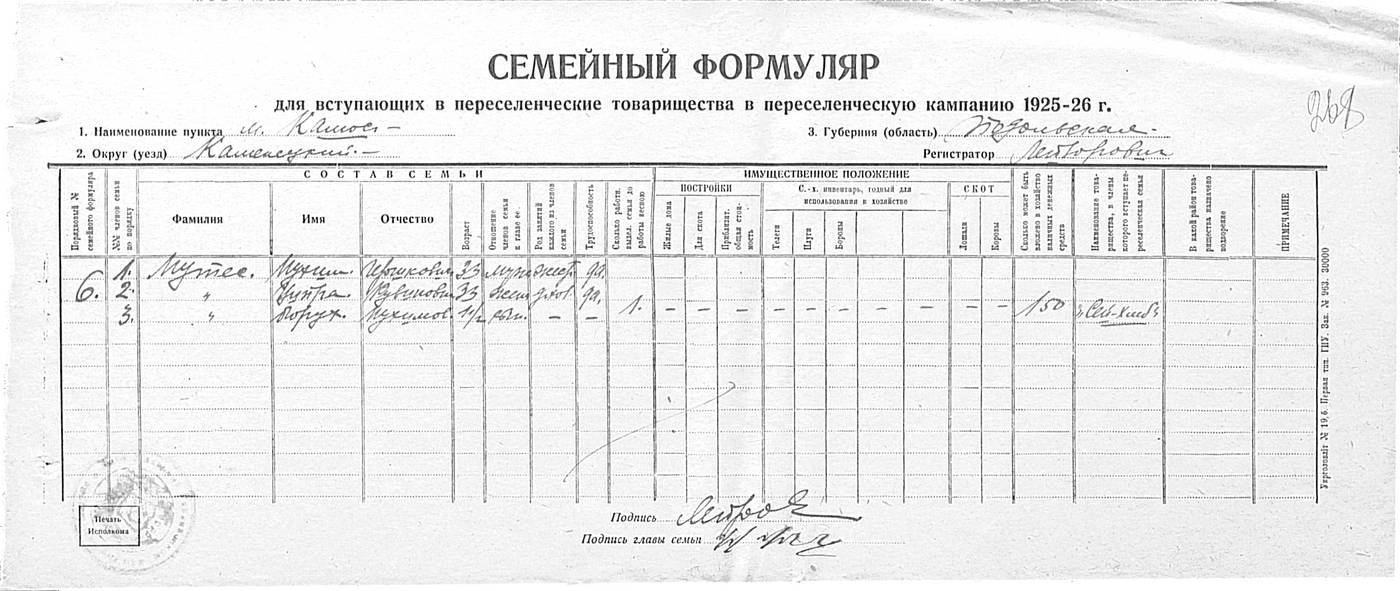 СЕМЕЙНЫЙ ФОРМУЛЯР
для вступающих в переселенческие товарищества в переселенческую кампанию 1925-26 г.
268
1. Наименование пункта м.
3. Губерния (область) Подольская
2. Округ (уезд) Каменецкий
Регистратор
Порядковый № семейного формуляра
СОСТАВ СЕМЬИ
№№ членов семьи по порядку
Фамилия
Имя
Отчество
Возраст
Отношение членов семьи к главе ее.
Род занятий каждого из членов семьи
Трудоспособность
Сколько работн. выдел. семья до работы весною
ИМУЩЕСТВЕННОЕ ПОЛОЖЕНИЕ
ПОСТРОЙКИ
Жилые дома
Для скота
Приблизит. общая стоимость
С.-х. инвентарь, годный для использования в хозяйстве
Телеги
Плуги
Бороны
СКОТ
Лошади
Коровы
Сколько может быть вложено в хозяйство наличных денежных средств
Наименование товарищества, в члены которого вступает переселенческая семья
В какой район товарищества назначено водворение
ПРИМЕЧАНИЕ
6. 1. Мутес. Мухим. 33 муж да.
2. " 33 жена да.
3. " Борух. Мухимов. 1 1/2 сын. – – 1. – – – – – – – – – – 150
Печать Исполкома
Подпись
Подпись главы семьи
Укрголовліт № 19, б. Первая тип. ГИУ. Зак. № 963. 30000